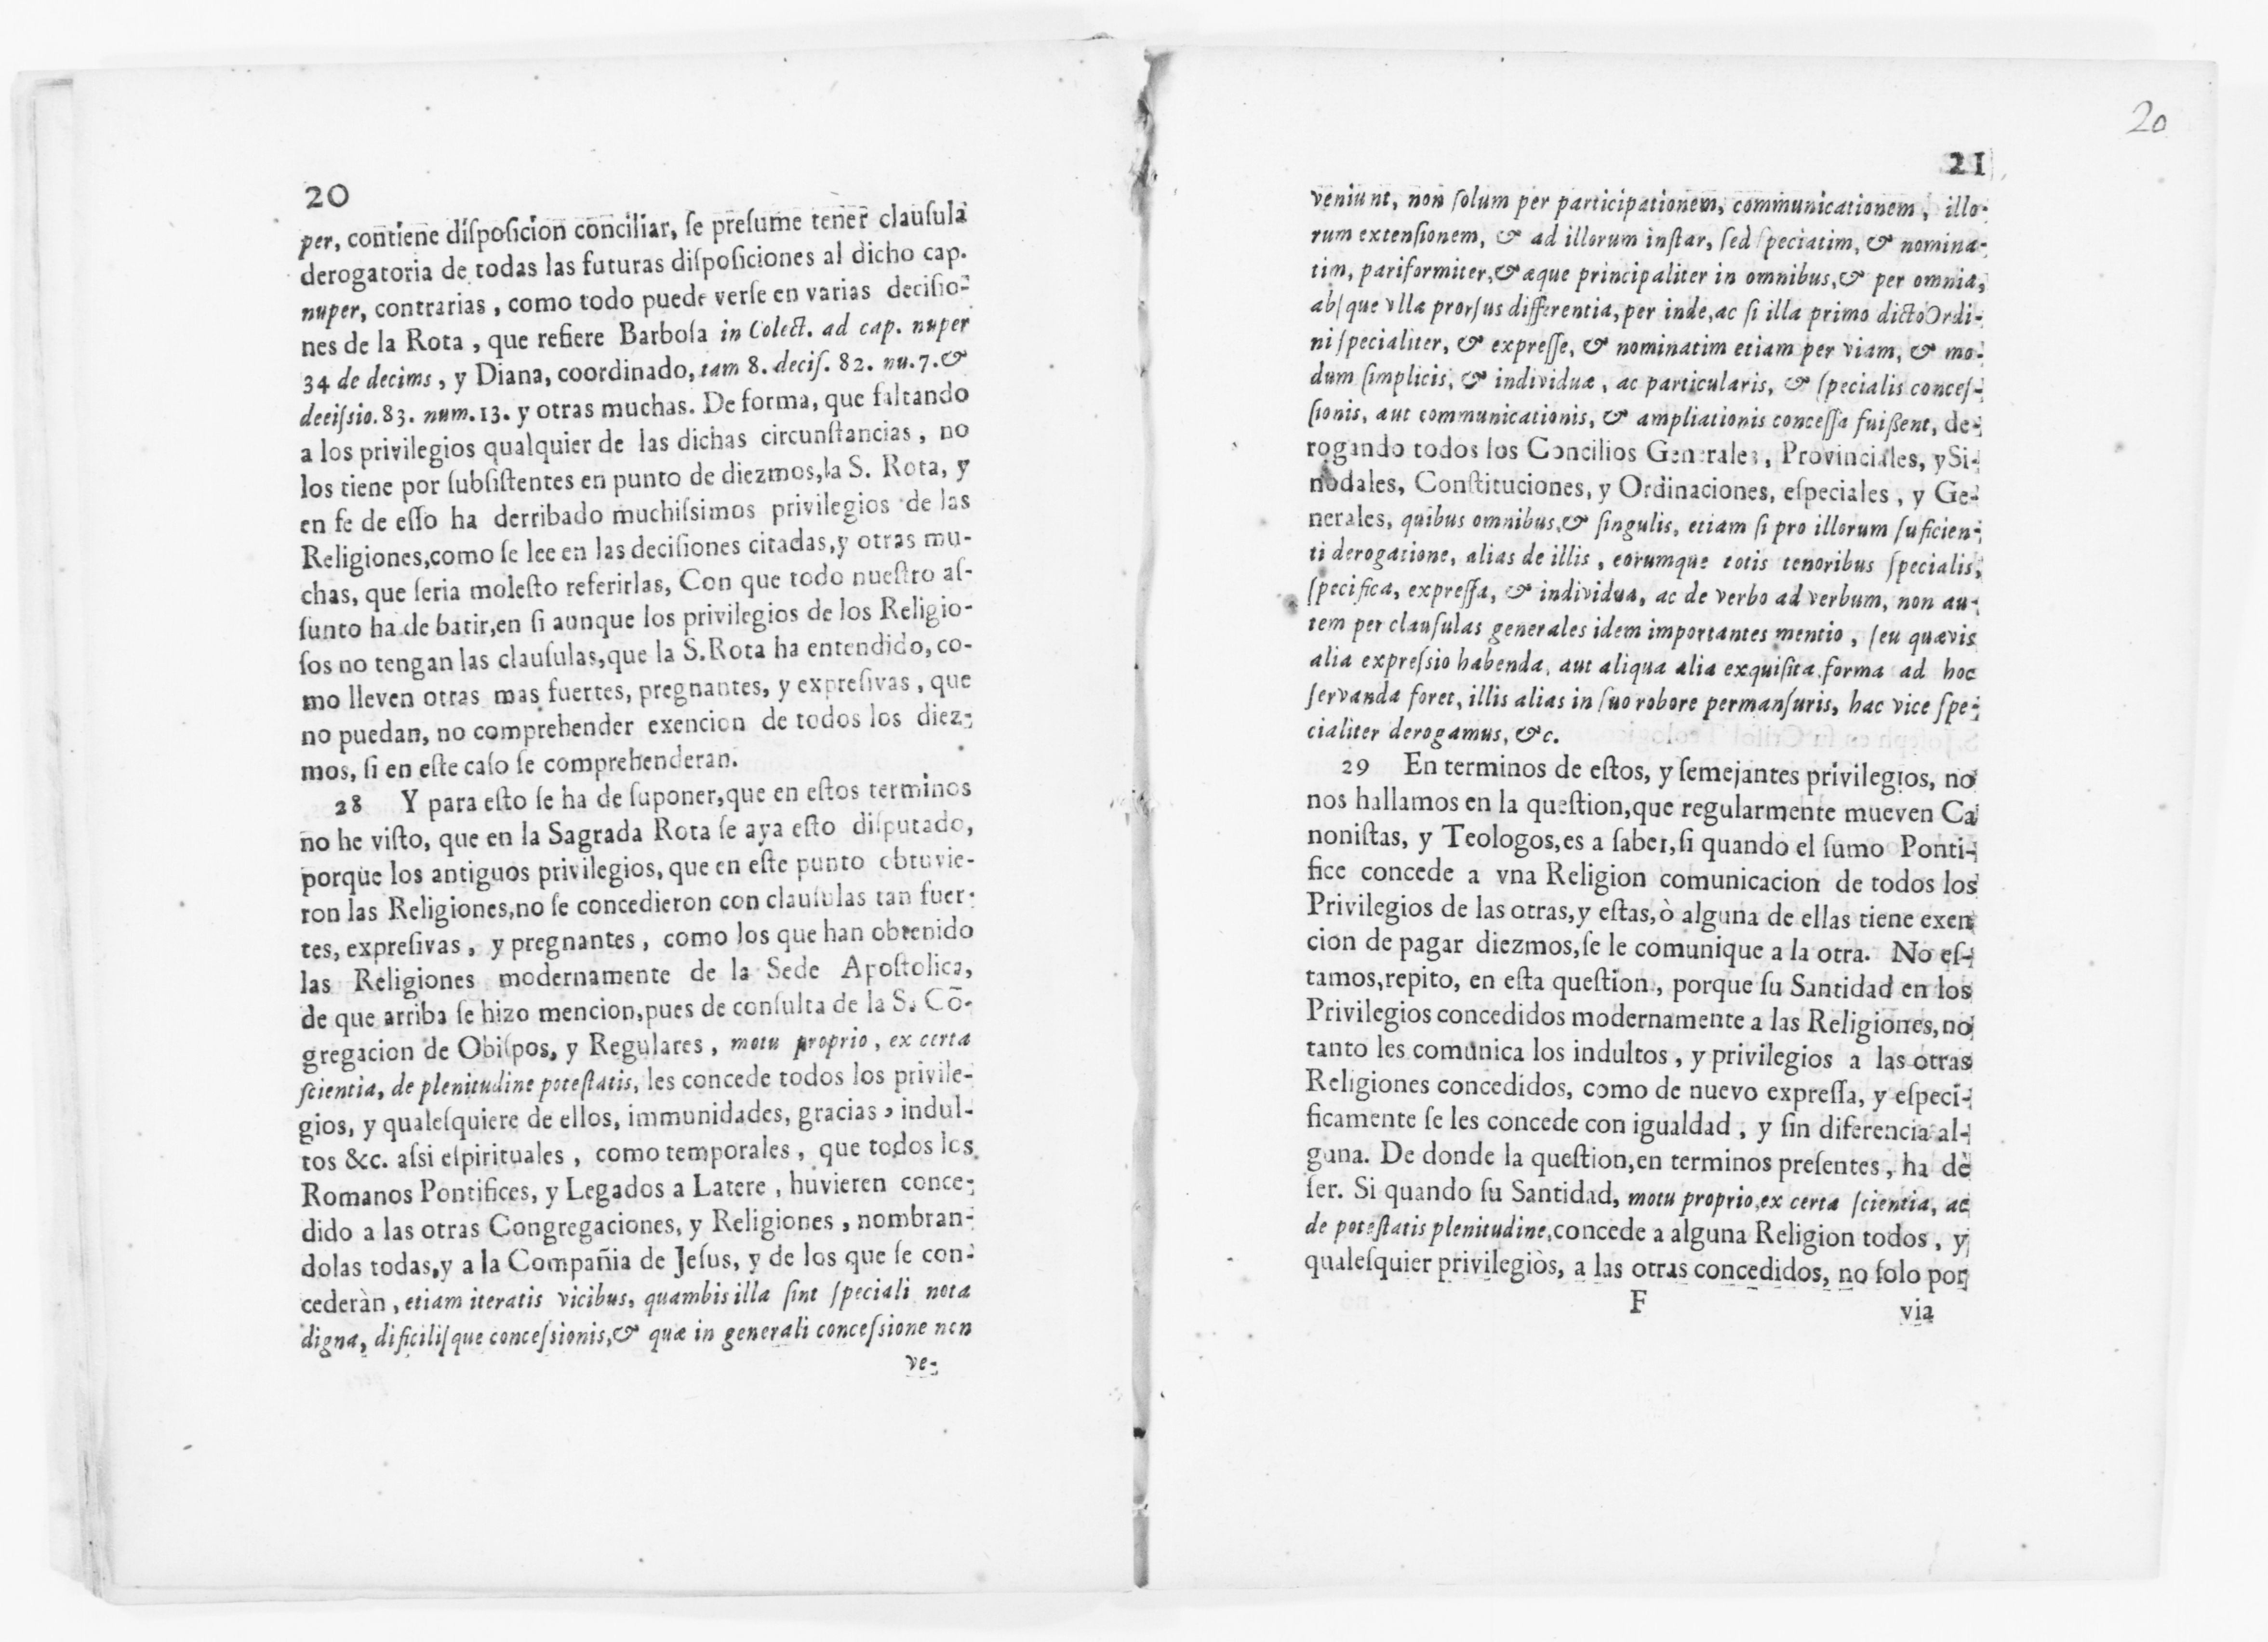 20
per, contiene diſpoſicion conciliar, ſe preſume tener clauſula
derogatoria de todas las futuras diſpoſiciones al dicho cap.
nuper, contrarias, como todo puede verſe en varias deciſio-
nes de la Rota, que refiere Barboſa in Colect. ad cap. nuper
34 de decims, y Diana, coordinado, tam 8. deciſ. 82. nu. 7. &
deciſsio. 83. num. 13. y otras muchas. De forma, que faltando
a los privilegios qualquier de las dichas circunſtancias, no
los tiene por ſubſiſtentes en punto de diezmos, la S. Rota, y
en fe de eſſo ha derribado muchiſsimos privilegios de las
Religiones, como ſe lee en las deciſiones citadas, y otras mu-
chas, que ſeria moleſto referirlas, Con que todo nueſtro aſ-
ſunto ha de batir, en ſi aunque los privilegios de los Religio-
ſos no tengan las clauſulas, que la S. Rota ha entendido, co-
mo lleven otras mas fuertes, pregnantes, y expreſivas, que
no puedan, no comprehender exencion de todos los diez-
mos, ſi en eſte caſo ſe comprehenderan.
28 Y para eſto ſe ha de ſuponer, que en eſtos terminos
no he viſto, que en la Sagrada Rota ſe aya eſto diſputado,
porque los antiguos privilegios, que en eſte punto obtuvie-
ron las Religiones, no ſe concedieron con clauſulas tan fuer-
tes, expreſivas, y pregnantes, como los que han obtenido
las Religiones modernamente de la Sede Apoſtolica,
de que arriba ſe hizo mencion, pues de conſulta de la S. Cõ-
gregacion de Obiſpos, y Regulares, motu proprio, ex certa
ſcientia, de plenitudine poteſtatis, les concede todos los privile-
gios, y qualeſquiere de ellos, immunidades, gracias, indul-
tos &c. aſsi eſpirituales, como temporales, que todos los
Romanos Pontifices, y Legados a Latere, huvieren conce-
dido a las otras Congregaciones, y Religiones, nombran-
dolas todas, y a la Compañia de Jeſus, y de los que ſe con-
cederàn, etiam iteratis vicibus, quambis illa ſint ſpeciali nota
digna, dificiliſque conceſsionis, & quæ in generali conceſsione non
ve-
20
21
veniunt, non ſolum per participationem, communicationem, illo-
rum extenſionem, & ad illorum inſtar, ſed ſpeciatim, & nomina-
tim, pariformiter, & æque principaliter in omnibus, & per omnia,
abſque vlla prorſus differentia, per inde, ac ſi illa primo dicto Ordi-
ni ſpecialiter, & expreſſe, & nominatim etiam per viam, & mo-
dum ſimplicis, & individuæ, ac particularis, & ſpecialis conceſ-
ſionis, aut communicationis, & ampliationis conceſſa fuiſſent, de-
rogando todos los Concilios Generales, Provinciales, y Si-
nodales, Conſtituciones, y Ordinaciones, eſpeciales, y Ge-
nerales, quibus omnibus, & ſingulis, etiam ſi pro illorum ſuficien-
ti derogatione, alias de illis, eorumque totis tenoribus ſpecialis,
ſpecifica, expreſſa, & individua, ac de verbo ad verbum, non au-
tem per clauſulas generales idem importantes mentio, ſeu quævis
alia expreſsio habenda, aut aliqua alia exquiſita forma ad hoc
ſervanda foret, illis alias in ſuo robore permanſuris, hac vice ſpe-
cialiter derogamus, &c.
29 En terminos de eſtos, y ſemejantes privilegios, no
nos hallamos en la queſtion, que regularmente mueven Ca
noniſtas, y Teologos, es a ſaber, ſi quando el ſumo Ponti-
fice concede a vna Religion comunicacion de todos los
Privilegios de las otras, y eſtas, ò alguna de ellas tiene exen
cion de pagar diezmos, ſe le comunique a la otra. No eſ-
tamos, repito, en eſta queſtion, porque ſu Santidad en los
Privilegios concedidos modernamente a las Religiones, no
tanto les comunica los indultos, y privilegios a las otras
Religiones concedidos, como de nuevo expreſſa, y eſpeci-
ficamente ſe les concede con igualdad, y ſin diferencia al-
guna. De donde la queſtion, en terminos preſentes, ha de
ſer. Si quando ſu Santidad, motu proprio, ex certa ſcientia, ac
de poteſtatis plenitudine, concede a alguna Religion todos, y
qualeſquier privilegiòs, a las otras concedidos, no ſolo por
F
via